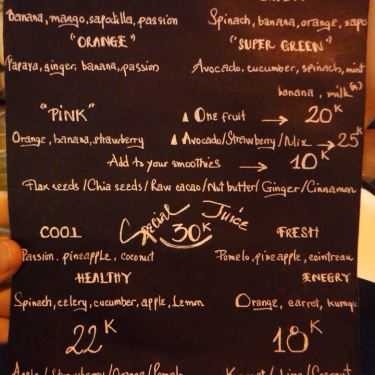 Banana, mango, sapodilla, passion
Spinach, banana, orange, sapo
"ORANGE"
"SUPER GREEN"
Papaya, ginger, banana, passion
Avocado, cucumber, spinach, mint
banana, milk
"PINK"
One fruit → 20K
Orange, banana, strawberry
Avocado/Strawberry/Mix → 25K
Add to your smoothies → 10K
Flax seeds/Chia seeds/Raw cacao/Nut butter/Ginger/Cinnamon
Special Juice
30K
COOL
FRESH
Passion, pineapple, coconut
Pomelo, pineapple, cointreau
HEALTHY
ENEGRY
Spinach, celery, cucumber, apple, Lemon
Orange, carrot, kumqu
22K
18K